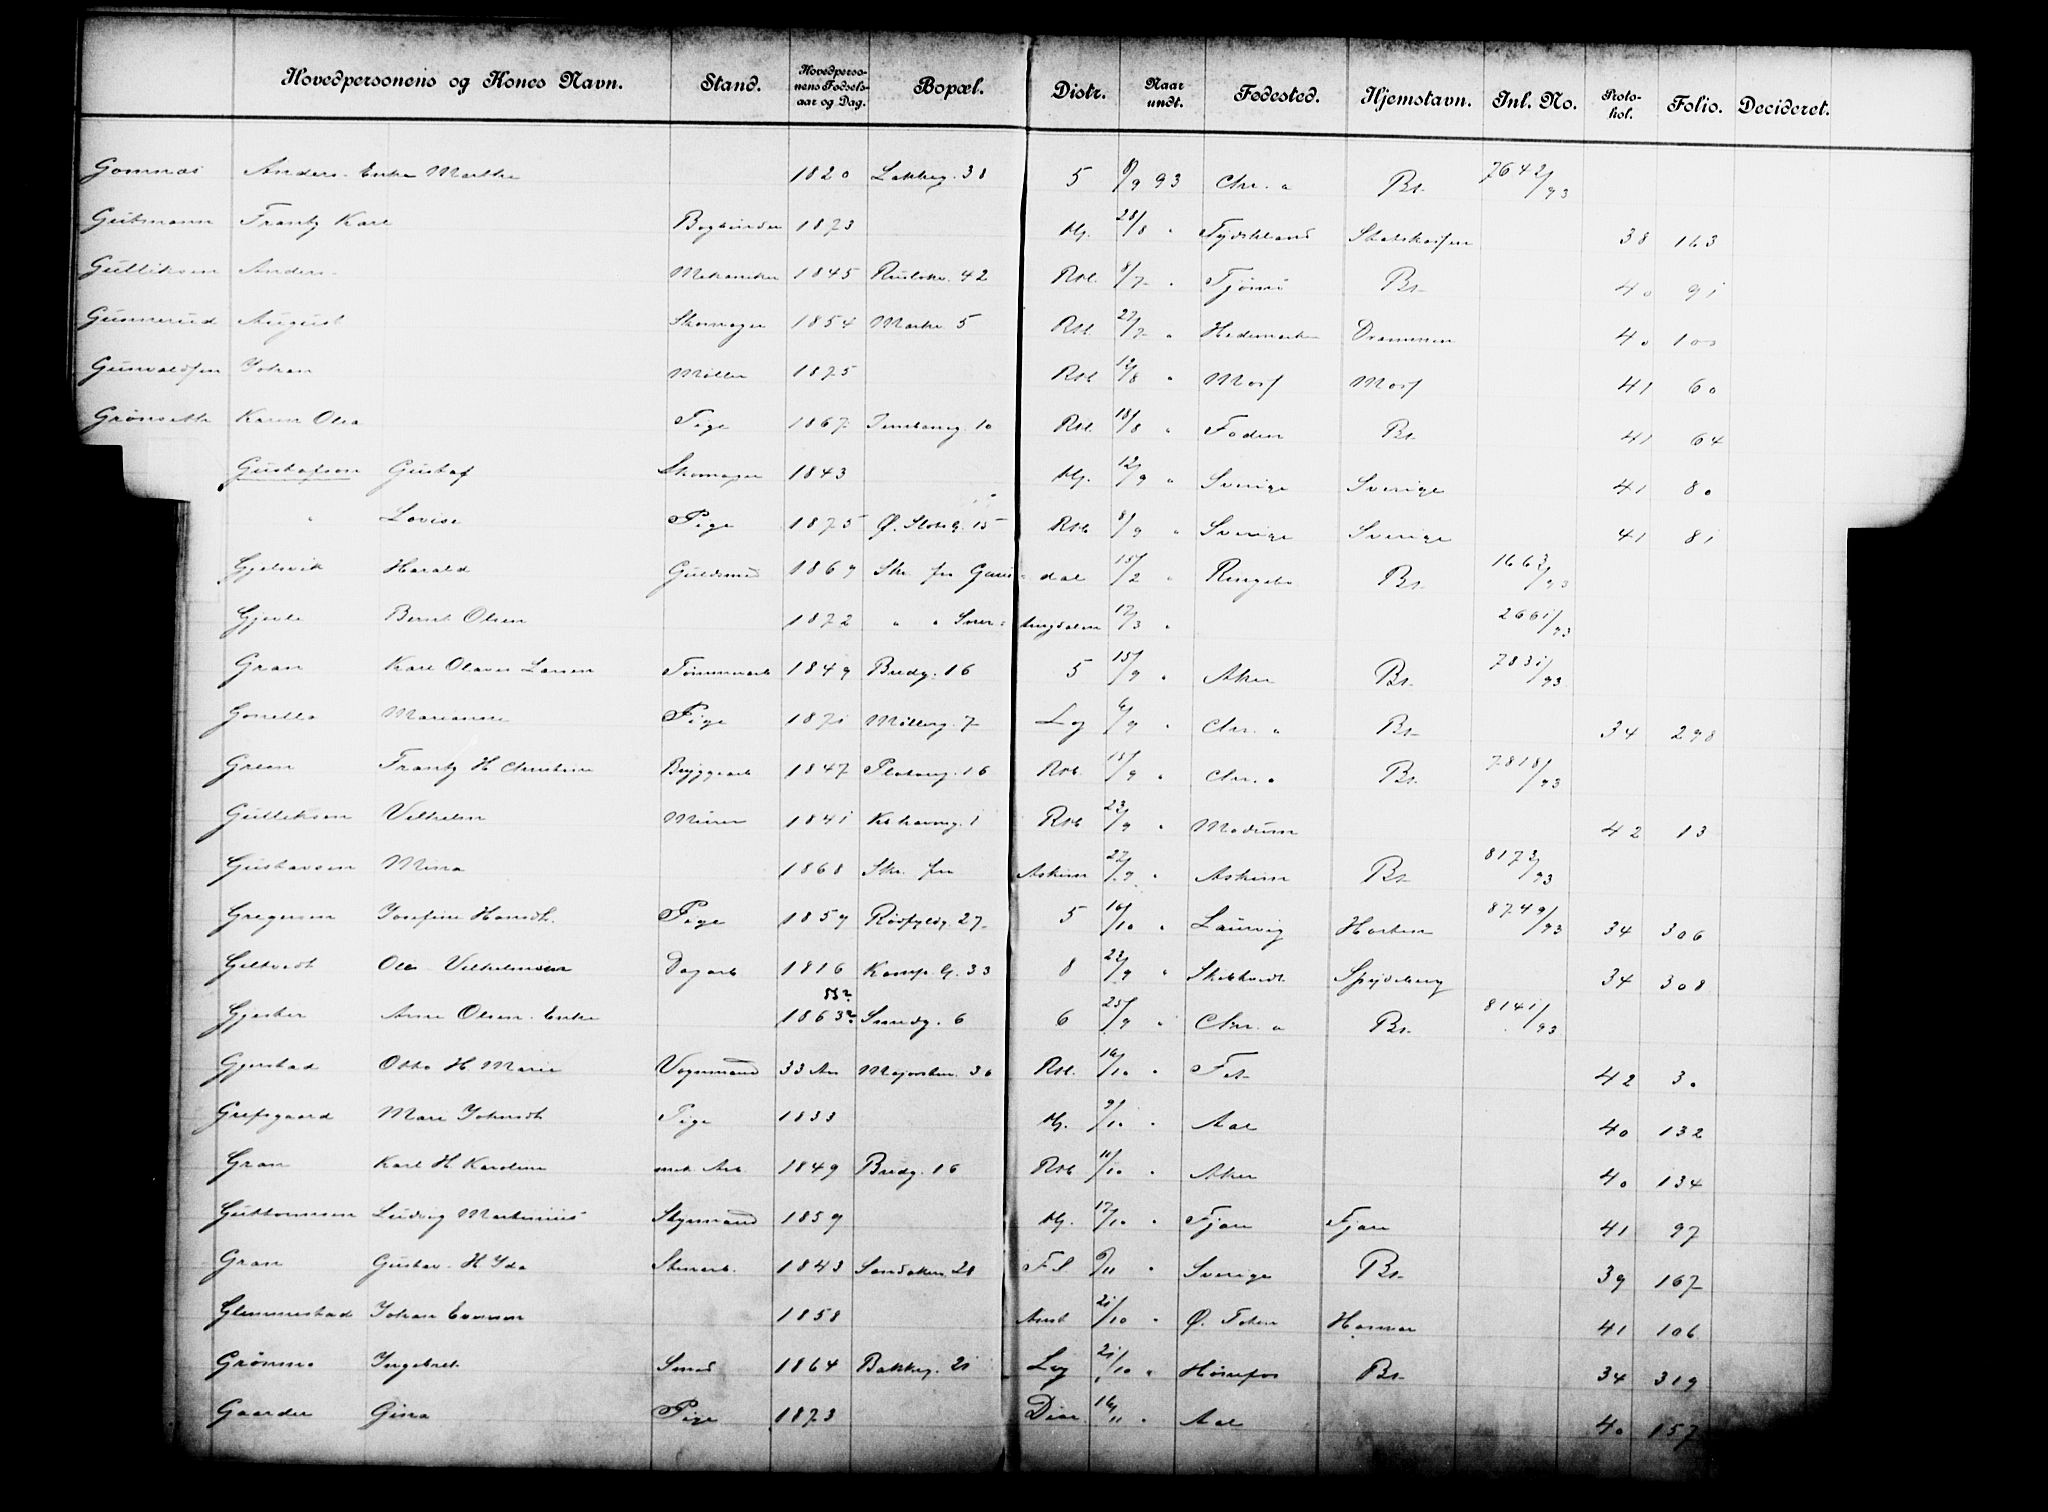 Hovedpersonens og Kones Navn. Stand. Hovedpersonens Fødselsaar og Dag. Bopæl. Distr. Naar undt. Fødested. Hjemstavn. Inl. No. Protokol. Folio. Decideret.
Gomnæs Anders Enke Marthe 1820 Lakkeg. 38 5 8/9 93 Chr. a Br. 7642/93
Gutsmann Frantz Karl Bogbinder 1873 Hj. 28/8 " Tydskland 38 163
Gulliksen Anders 1845 42 Rtl. 8/7 " Tjømø Br. 40 91
Gunnerud August Skomager 1854 Markv. 5 Rtl. 27/7 " Hedemarken Drammen 40 100
Gunvaldsen Johan Møller 1875 Rtl. 12/8 " Moss Moss 41 60
Grønsetth Karen Olea Pige 1867 10 Rtl. 18/8 " Br. 41 64
Gustafson Gustaf Skomager 1843 Hj. 12/9 " Sverige Sverige 41 80
" Lovise Pige 1875 Ø. Slotsg. 15 Rtl. 8/9 " Sverige Sverige 41 81
Gjelsvik Harald Guldsmed 1869 Skr. fra Gausdal 15/2 " Ringebu Br. 1663/93
Gjerle Bernt Olsen 1872 " " 17/3 " 2661/93
Gran Karl Olaves Larsen 1849 Bredg. 16 5 15/9 " Aker Br. 7831/93
Gonella Marianne Pige 1871 Møllerg. 7 Lg 6/9 " Chr. a Br. 34 298
Green Frantz H Christine Bryggearb 1847 16 Rtl. 15/9 " Chr. a Br. 7818/93
Gulliksen Vilhelm Murer 1841 1 Rtl. 23/9 " Modum 42 13
Gustavsen Mina 1868 Skr. fra Askim 27/9 " Askim Br. 8173/93
Gregersen Josefine Hansdt. Pige 1859 Rødfyldg. 27 5 16/10 " Laurvig Horten 8749/93 34 306
Geltvedt Ole Vilhelmsen Dagarb 1816 Kamp. G. 33 8 22/9 " Spydeberg 34 308
Gjesber Arne Olsen Enke 1863? 55? Smedg. 6 6 25/9 " Chr. a Br. 8141/93
Gjerstad Otto H Marie Vognmand 33 Aar Majorstuv. 36 Rtl. 16/10 " Fet 42 30
Grefsgaard Mari Johnsdt Pige 1833 Hj. 9/10 " Aal 40 132
Gran Karl H Karoline 1849 Bredg. 16 Rtl. 11/10 " Aker 40 134
Guttormsen Ludvig Martinius Styrmand 1859 Hj. 17/10 " 41 97
Gran Gustav H Ida Stenarb. 1843 Sandakerv. 28 F.S. 6/11 " Sverige Br. 39 167
Glemmestad Johan 1858 Amt 21/10 " Ø. Toten Hamar 41 106
Grønmo Ingebret Smed 1864 Bakkeg. 21 Lg 21/10 " Hønefos Br. 34 319
Gaarder Gina Pige 1873 16/11 " Aal 40 157